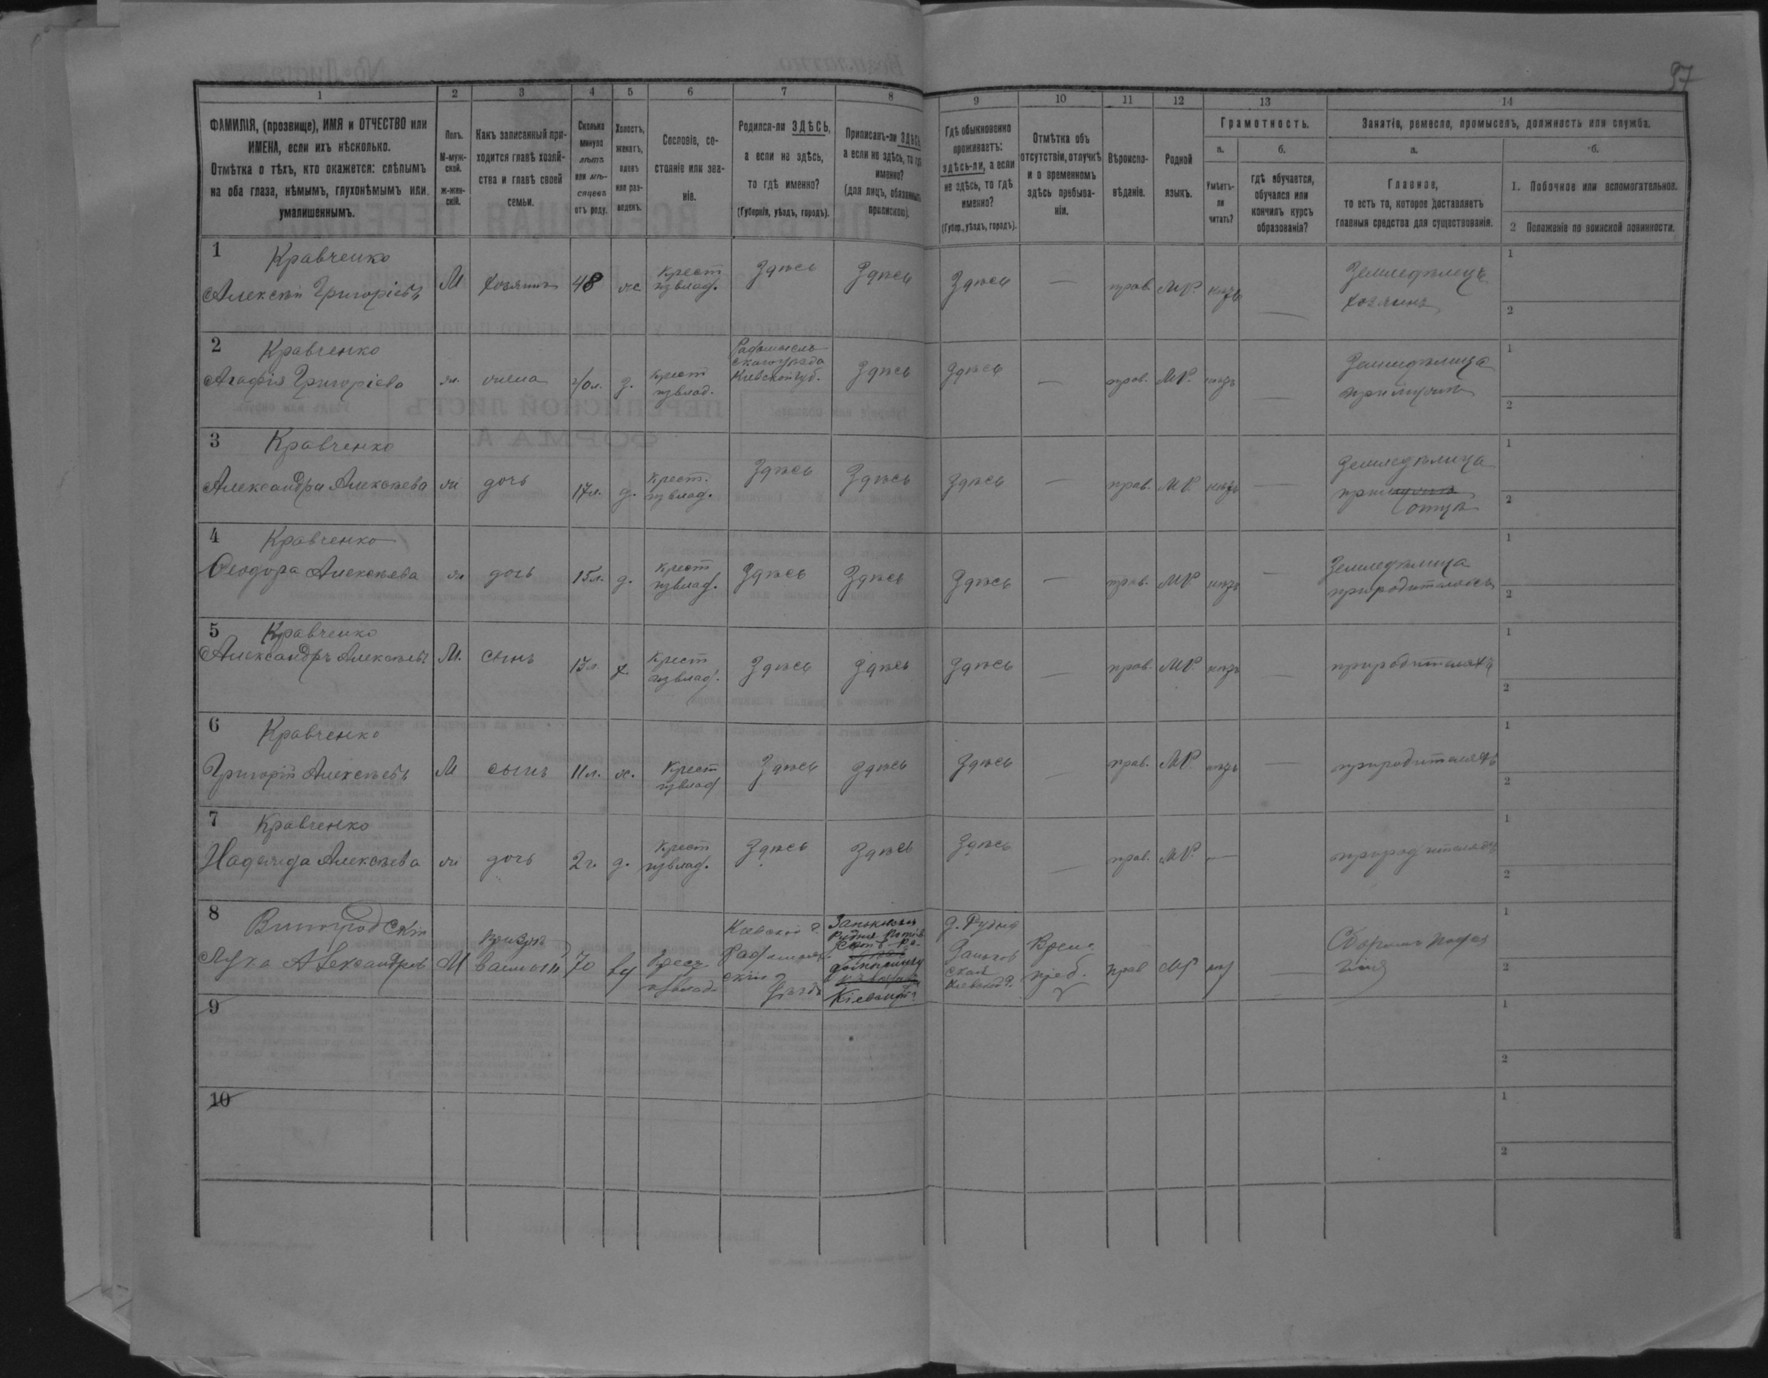 97
1 2 3 4 5 6 7 8 9 10 11 12 13 14
ФАМИЛІЯ, (прозвище), ИМЯ и ОТЧЕСТВО или
ИМЕНА, если ихъ нѣсколько.
Отмѣтка о тѣхъ, кто окажется: слѣпымъ
на оба глаза, нѣмымъ, глухонѣмымъ или
умалишеннымъ.
Полъ.
М-муж-
ской.
ж-жен-
скій.
Какъ записанный при-
ходится главѣ хозяй-
ства и главѣ своей
семьи.
Сколько
минуло
лѣтъ
или мѣ-
сяцевъ
отъ роду.
Холостъ,
женатъ,
вдовъ
или раз-
веденъ.
Сословіе, со-
стояніе или зва-
ніе.
Родился-ли ЗДѢСЬ,
а если не здѣсь,
то гдѣ именно?
(Губернія, уѣздъ, городъ).
Приписанъ-ли ЗДѢСЬ,
а если не здѣсь, то гдѣ
именно?
(для лицъ, обязанныхъ
припискою).
Гдѣ обыкновенно
проживаетъ:
здѣсь-ли, а если
не здѣсь, то гдѣ
именно?
(Губер., уѣздъ, городъ).
Отмѣтка объ
отсутствіи, отлучкѣ
и о временномъ
здѣсь пребыва-
ніи.
Вѣроиспо-
вѣданіе.
Родной
языкъ.
Грамотность.
а.
Умѣетъ-
ли
читать?
б.
гдѣ обучается,
обучался или
кончилъ курсъ
образованія?
Занятіе, ремесло, промыселъ, должность или служба.
а.
Главное,
то есть то, которое доставляетъ
главныя средства для существованія.
б.
1. Побочное или вспомогательное.
2 Положеніе по воинской повинности.
1 Кравченко
Алексѣй Григоріевъ М хозяинъ 48 ж Крест. Здѣсь Здѣсь Здѣсь — прав. МР. нѣтъ — Земледѣлецъ
хозяинъ
1
2
2 Кравченко
Агафія Григоріева ж. жена 40 л. з. Крест. Радомысль
скаго уѣзда
Кіевской губ. Здѣсь Здѣсь — прав. МР. нѣтъ — Земледѣлица
при мужѣ
1
2
3 Кравченко
Александра Алексѣева ж дочь 17 л. д. Крест. Здѣсь Здѣсь Здѣсь — прав. МР. нѣтъ — Земледѣлица
при
отцѣ
1
2
4 Кравченко
Ѳеодора Алексѣева ж дочь 15 л. д. Крест Здѣсь Здѣсь Здѣсь — прав. МР. нѣтъ — Земледѣлица
при родителяхъ
1
2
5 Кравченко
Александръ Алексѣевъ М. сынъ 13 л. х. Крест Здѣсь Здѣсь Здѣсь — прав. МР. нѣтъ — при родителяхъ
1
2
6 Кравченко
Григорій Алексѣевъ М сынъ 11 л. х. Крест Здѣсь Здѣсь Здѣсь — прав. МР. нѣтъ — при родителяхъ
1
2
7 Кравченко
Надежда Алексѣева ж дочь 2 г. д. Крест Здѣсь Здѣсь Здѣсь — прав. МР. — при родителяхъ
1
2
8 Виногродскій
Лука Александровъ М 70 вд Крест Кіевской г.
Радомысль
скій уѣздъ
Кіевской г.
д. Рудня
Кіевской г. Време
преб. прав МР
1
2
9
1
2
10
1
2